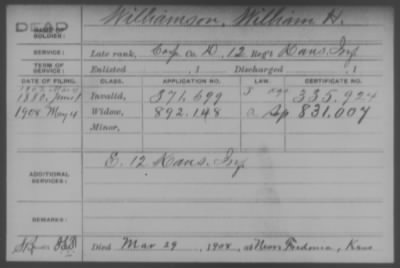 DEAD
NAME OF SOLDIER: Williamson, William H.
SERVICE: Late rank, Corp Co. D, 12 Reg't Kans. Inf
TERM OF SERVICE: Enlisted , 1 Discharged , 1
DATE OF FILING. CLASS. APPLICATION NO. LAW. CERTIFICATE NO.
1880, June 1 Invalid, 371.699 335.924
1908 May 4 Widow, 892.148 a Ap 831.007
Minor,
ADDITIONAL SERVICES: E. 12 Kans. Inf
REMARKS:
Died Mar 29, 1908, at Near Fredonia, Kans